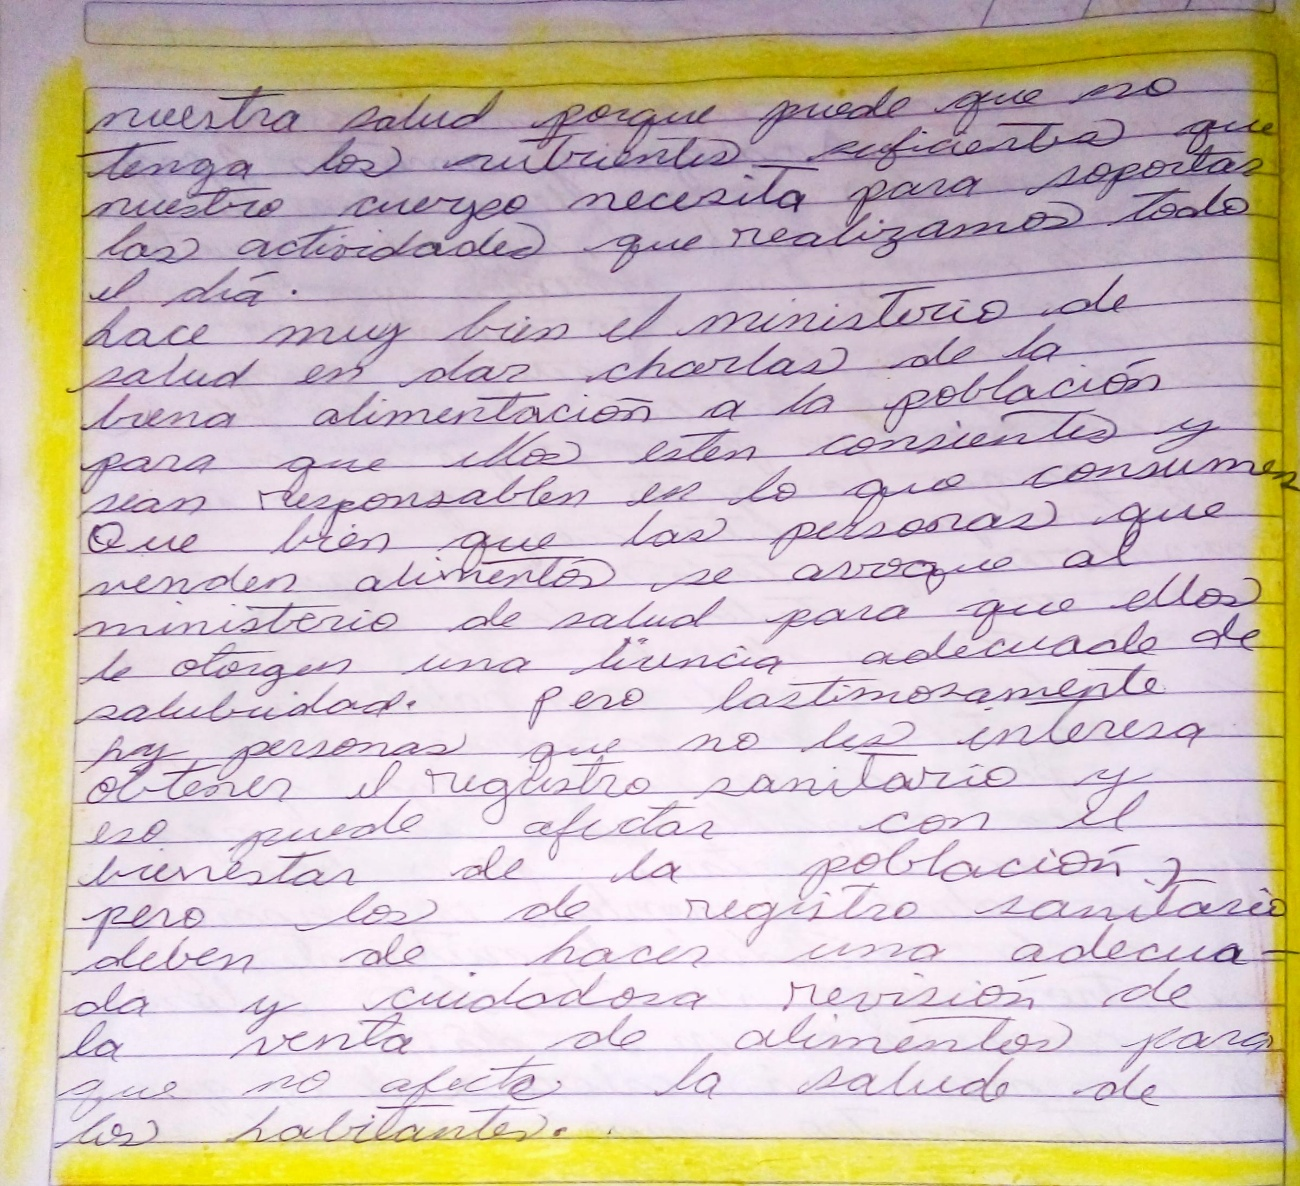 nuestra salud porque puede que no
tenga los nutrientes suficientes que
nuestro cuerpo necesita para soportar
las actividades que realizamos todo
el día.
hace muy bien el ministerio de
salud en dar charlas de la
buena alimentación a la población
para que ellos esten consientes y
sean responsables en lo que consumen
Que bien que las personas que
venden alimentos se avoque al
ministerio de salud para que ellos
le otorgen una licencia adecuada de
salubridad. Pero lastimosamente
hy personas que no les interesa
obtener el registro sanitario y
eso puede afectar con el
bienestar de la población,
pero los de registro sanitario
deben de hacer una adecua-
da y cuidadosa revisión de
la venta de alimentos para
que no afecte la salude de
los habitantes.